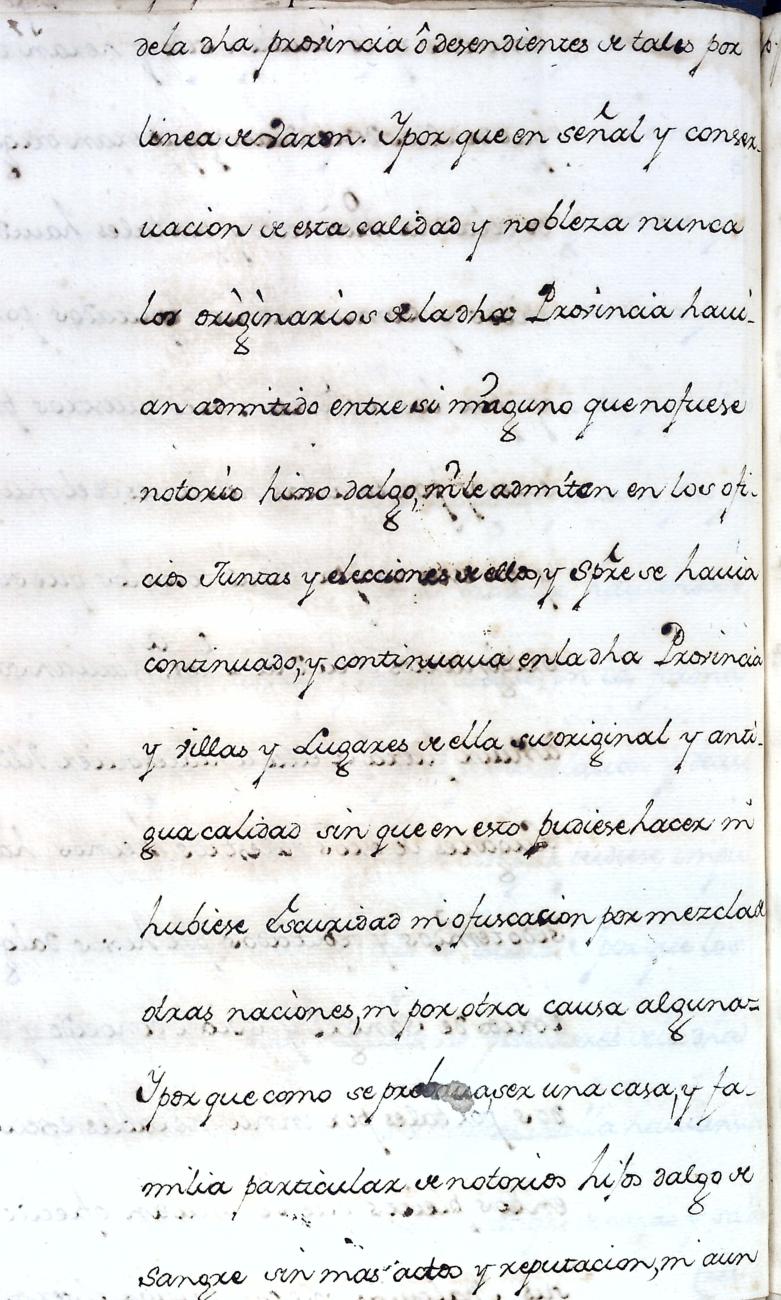 dela dha provincia ô desendientes de tales por
linea de varon. Y por que en señal y conser-
uacion de esta calidad y nobleza nunca
los originarios de la dha Provincia haui-
an admitido entre si ninguno que no fuese
notorio hixo dalgo, ni le admiten en los ofi-
cios Juntas y elecciones de ellos, y Spre se hauia
continuado, y continuaua en la dha Provincia
y villas y Lugares de ella su original y anti-
gua calidad sin que en esto pudiese hacer ni
hubiese escuridad ni ofuscacion por mezcla de
otras naciones, ni por otra causa alguna=
Y por que como se probaua ser una casa, y fa-
milia particular de notorios hijos dalgo de
sangre sin mas actos y reputacion, ni aun